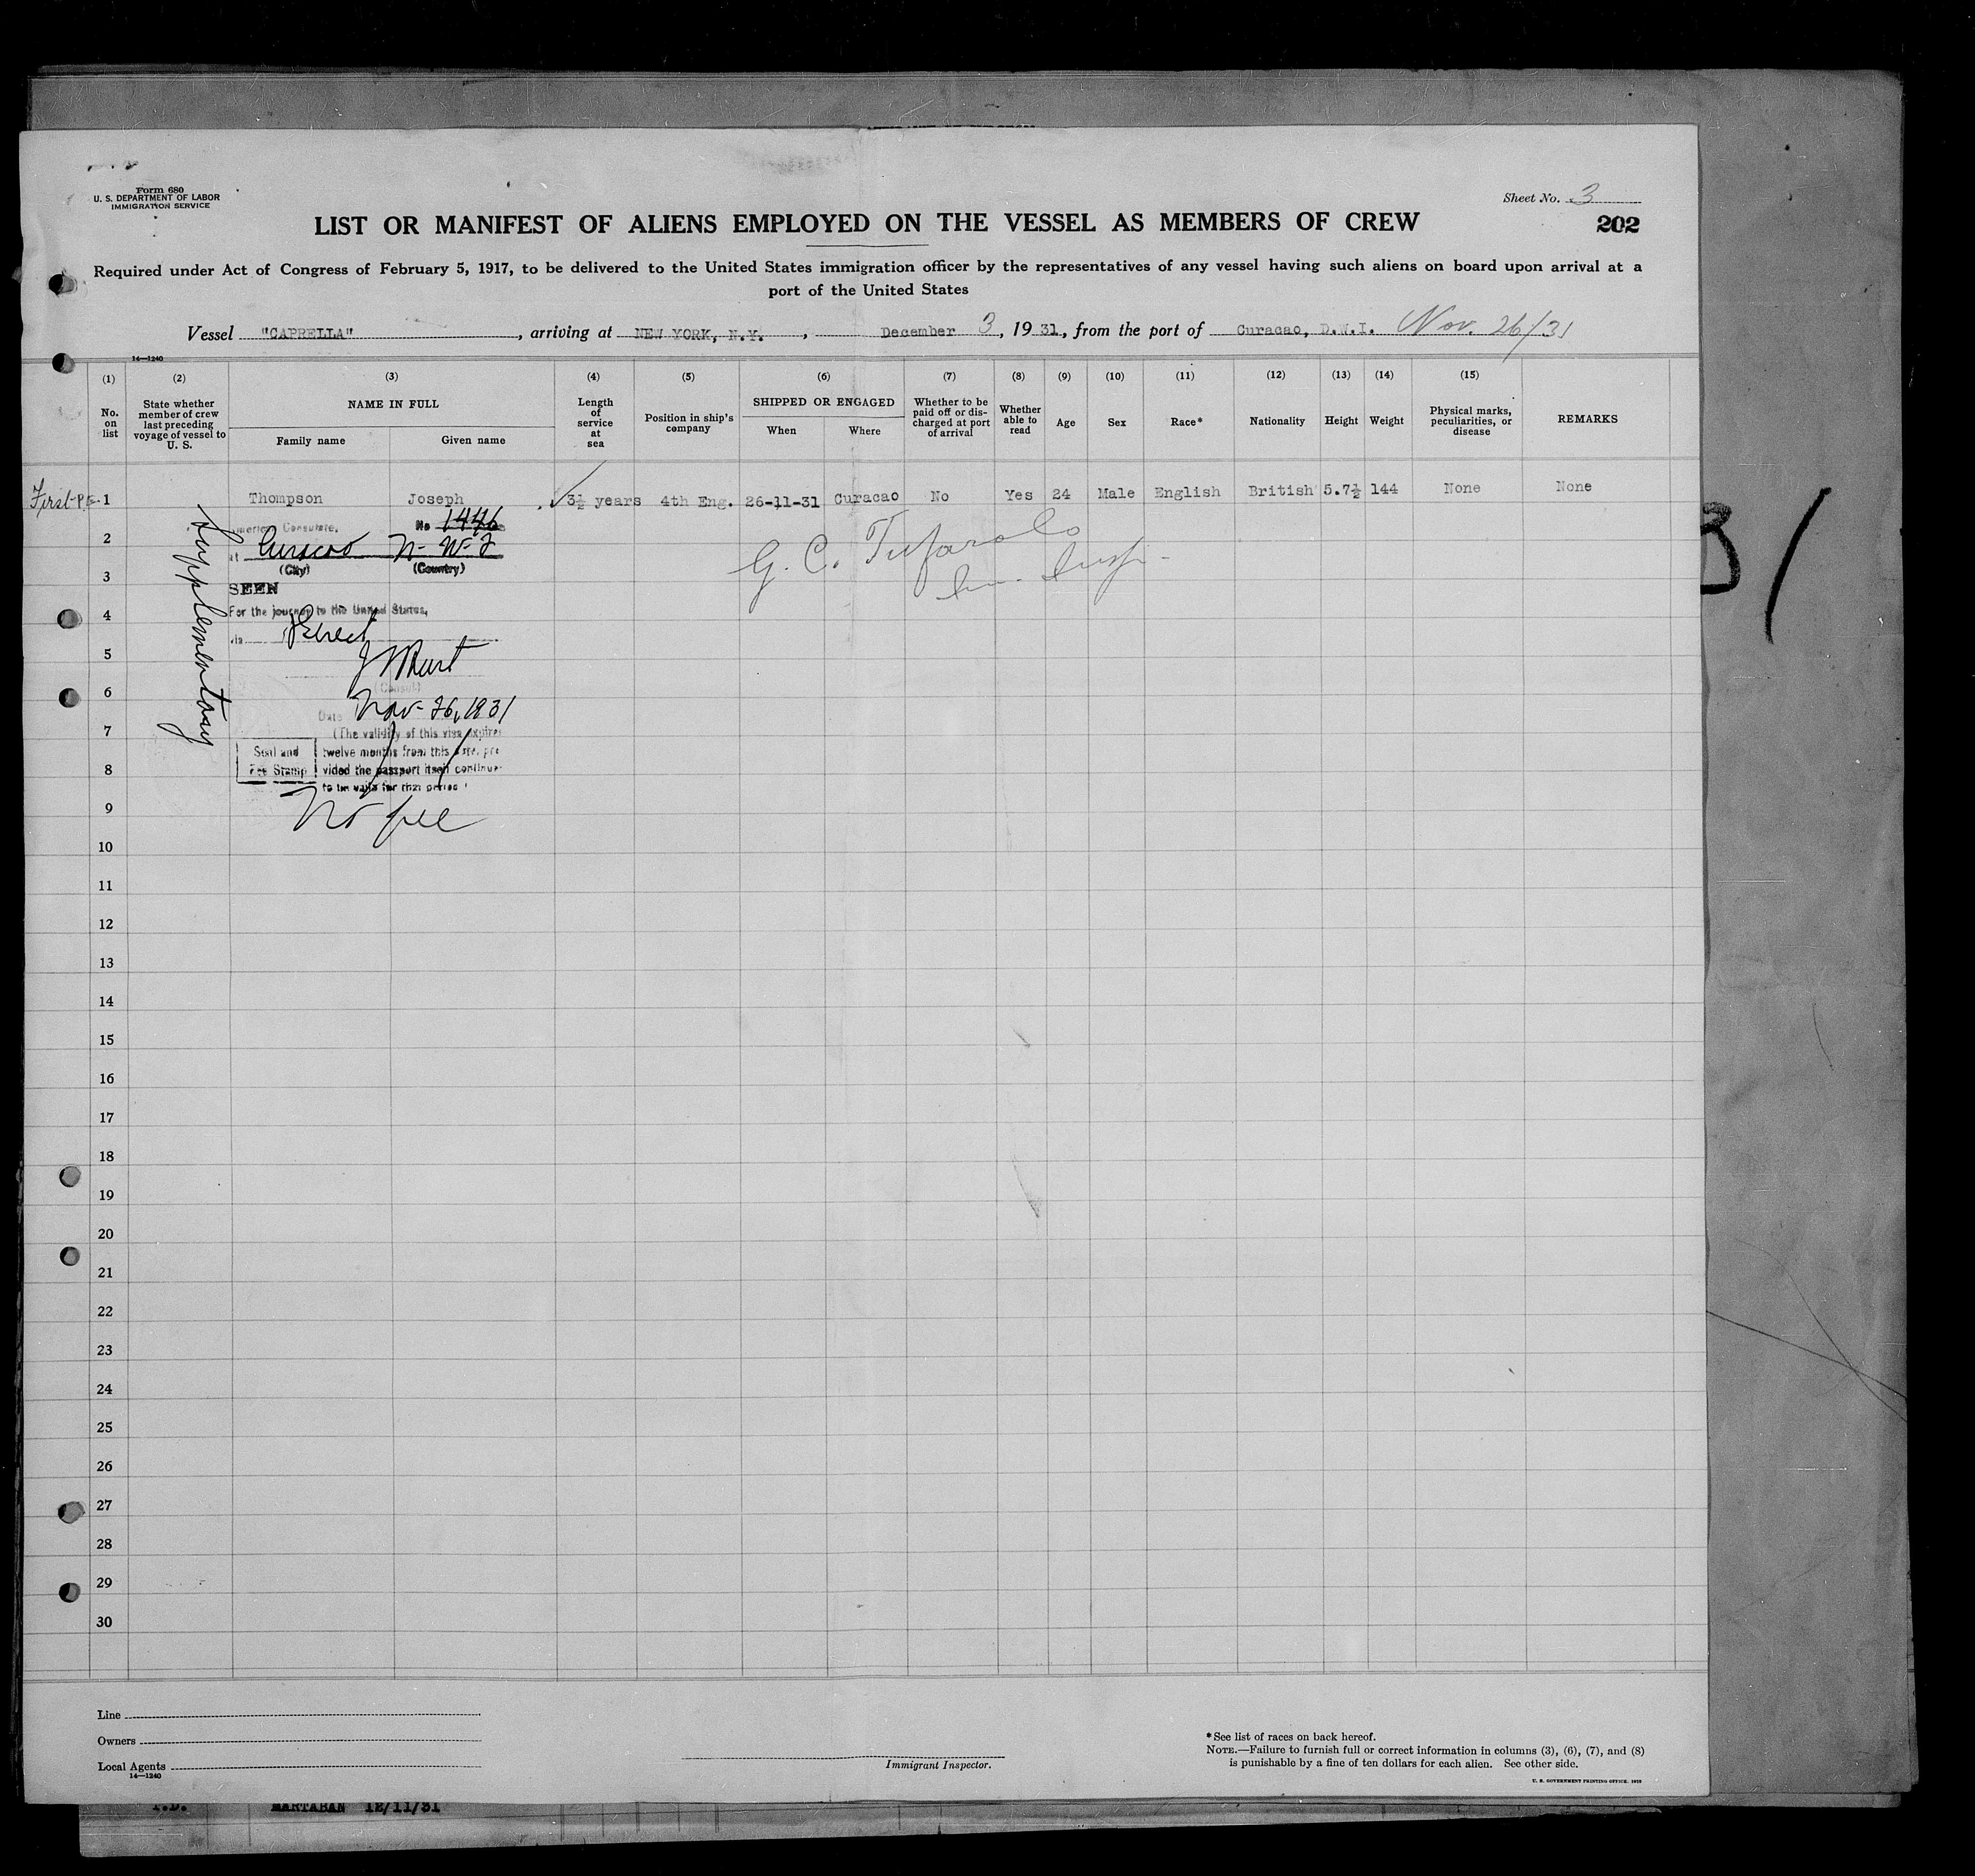 Form 680
U. S. DEPARTMENT OF LABOR
IMMIGRATION SERVICE
Sheet No. 3
LIST OR MANIFEST OF ALIENS EMPLOYED ON THE VESSEL AS MEMBERS OF CREW
202
Required under Act of Congress of February 5, 1917, to be delivered to the United States immigration officer by the representatives of any vessel having such aliens on board upon arrival at a
port of the United States
Vessel "CAPRELLA", arriving at NEW YORK, N.Y., December 3, 1931, from the port of Curacao, D.W.I. Nov. 26/31
14—1240
(1) (2) (3) (4) (5) (6) (7) (8) (9) (10) (11) (12) (13) (14) (15)
No. on list
State whether member of crew last preceding voyage of vessel to U. S.
NAME IN FULL
Family name
Given name
Length of service at sea
Position in ship's company
SHIPPED OR ENGAGED
When
Where
Whether to be paid off or discharged at port of arrival
Whether able to read
Age
Sex
Race*
Nationality
Height
Weight
Physical marks, peculiarities, or disease
REMARKS
First-P.E. 1 Thompson Joseph 3½ years 4th Eng. 26-11-31 Curacao No Yes 24 Male English British 5.7½ 144 None None
Supplementary
American Consulate, No 1446
at Curacao N-W-I
(City) (Country)
SEEN
For the journey to the United States,
via Direct
(Consul)
Date Nov-26, 1931
(The validity of this visa expires
twelve months from this date, pro
vided the passport itself continues
to be valid for that period
Seal and
Fee Stamp
No fee
G. C. Tufarolo
Im. Insp.
2
3
4
5
6
7
8
9
10
11
12
13
14
15
16
17
18
19
20
21
22
23
24
25
26
27
28
29
30
Line
Owners
Local Agents
14—1240
Immigrant Inspector.
*See list of races on back hereof.
NOTE.—Failure to furnish full or correct information in columns (3), (6), (7), and (8)
is punishable by a fine of ten dollars for each alien. See other side.
MARTABAN 12/11/31